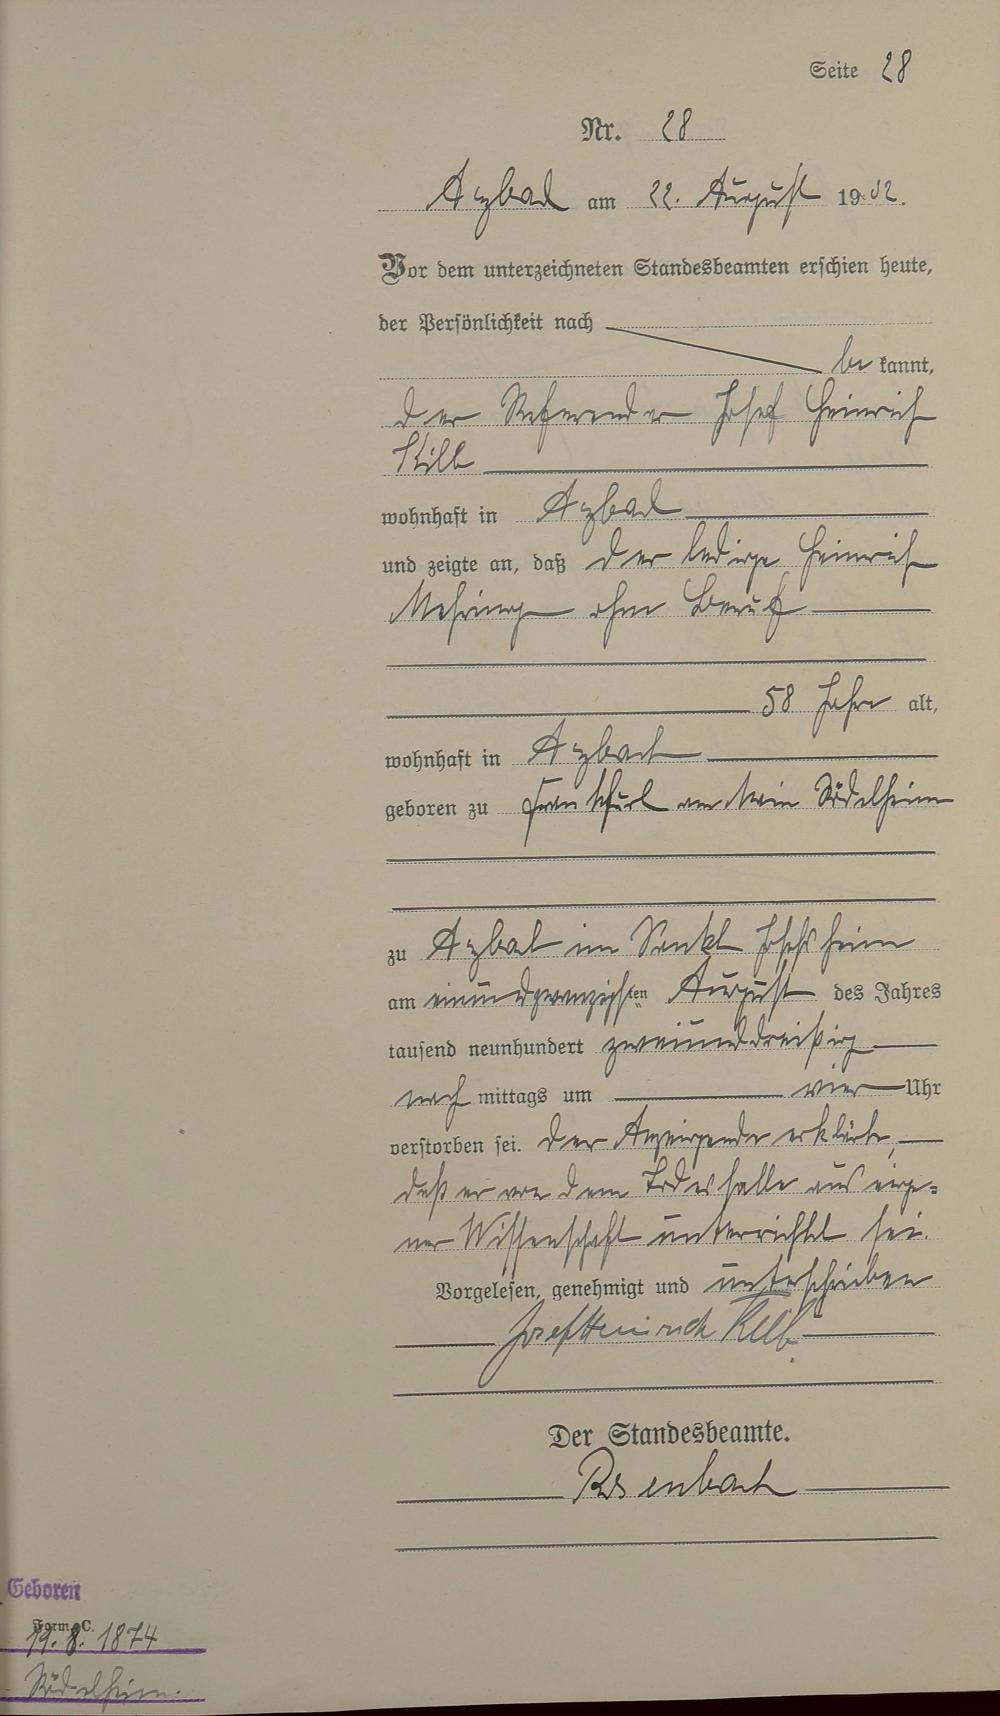 Seite 28
Nr. 28
Arzbach am 22. August 1932.
Vor dem unterzeichneten Standesbeamten erschien heute,
der Persönlichkeit nach
be kannt,
der Referendar Josef Heinrich
wohnhaft in Arzbach
und zeigte an, daß der ledige Heinrich
ohne Beruf
58 Jahre alt,
wohnhaft in Arzbach
geboren zu Frankfurt am Main Rödelheim
zu Arzbach im Sankt Josefsheim
am einundzwanzigsten August des Jahres
tausend neunhundert zweiunddreißig
nach mittags um vier Uhr
verstorben sei. Der Anzeigende erklärte,
daß er von dem Todesfalle aus eige=
ner Wissenschaft unterrichtet sei.
Vorgelesen, genehmigt und unterschrieben
Josef Heinrich
Der Standesbeamte.
Rosenbach
Geboren
Form. C.
19. 8. 1874
Rödelheim.